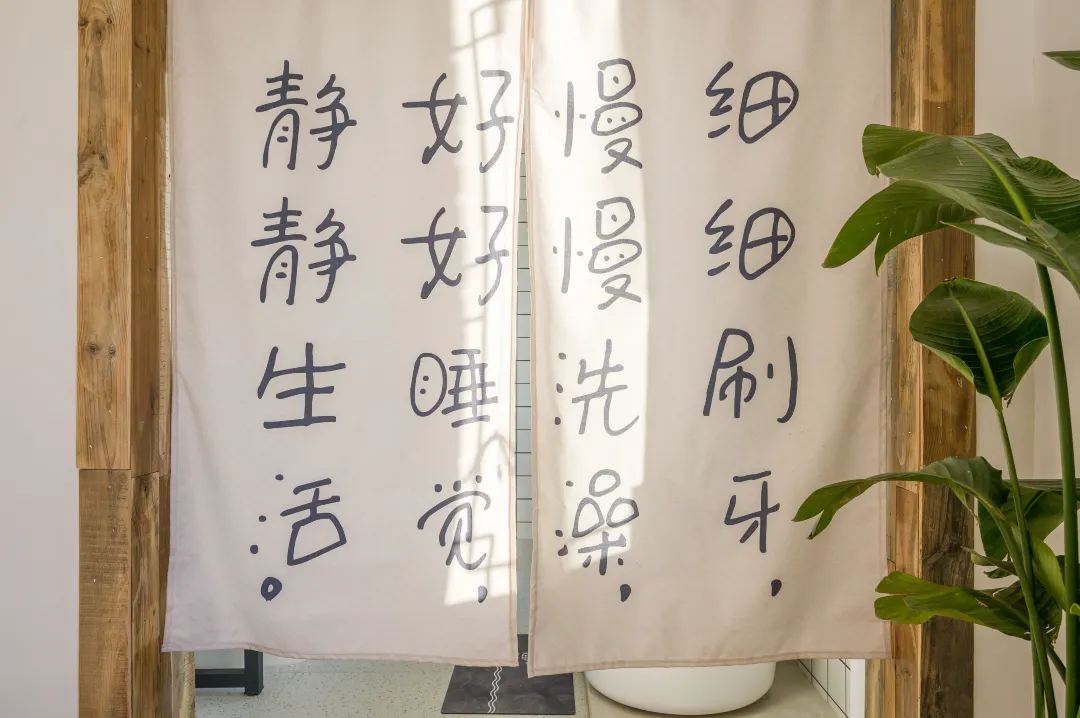 细细刷牙，
慢慢洗澡，
好好睡觉，
静静生活。